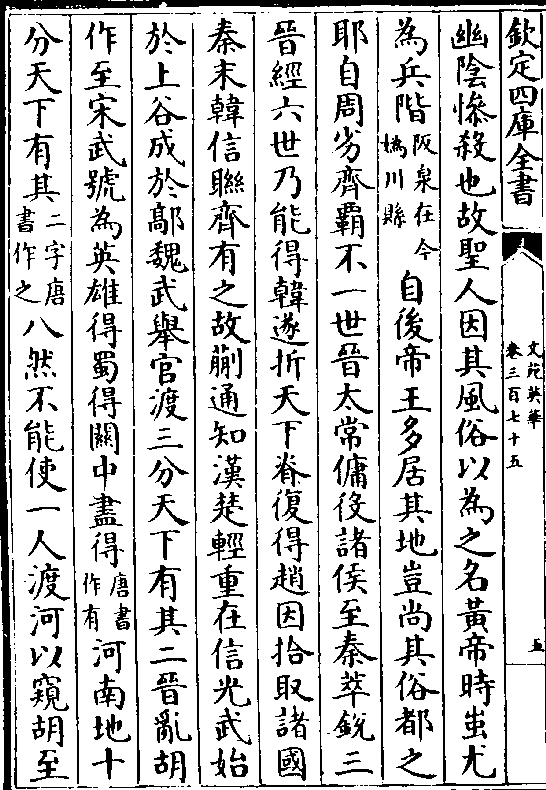 欽定四庫全書
文苑英華
卷三百七十五
五
幽陰慘殺也故聖人因其風俗以為之名黃帝時蚩尤
為兵階阪泉在今媯川縣自後帝王多居其地豈尚其俗都之
耶自周劣齊霸不一世晉太常傭役諸侯至秦萃銳三
晉經六世乃能得韓遂折天下脊復得趙因拾取諸國
秦末韓信聯齊有之故蒯通知漢楚輕重在信光武始
於上谷成於鄗魏武舉官渡三分天下有其二晉亂胡
作至宋武號為英雄得蜀得關中盡得唐書作有河南地十
分天下有其二字唐書作之八然不能使一人渡河以窺胡至